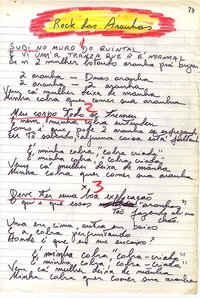 79
Rock das Aranhas
1
SUBI NO MURO DO QUINTAL
E VI UMA TRANZA QUE Ñ É NORMAL
Eu vi 2 mulher botando aranha prá brigar
2 aranha - Duas aranha
2 aranha - 2 aranha
Vem cá mulher deixa de manha
Minha cobra quer comer sua aranha
2
Meu corpo todo se tremeu
E nem minha cobra entendeu
Como é que pode 2 aranha se esfregando
Eu tô sabendo alguma coisa tá faltando
É minha cobra - "cobra criada"
É minha cobra - "cobra criada"
Vem cá mulher deixa de manha
Minha cobra quer comer sua aranha
3
Deve ter uma boa explicação
O que é que essas aranha tão fazendo ali no
chão.
Uma em cima, outra em baixo
E a cobra perguntando
Aonde é que eu me encaixo?
É minha cobra, "cobra-criada"
É minha cobra, "cobra-criada"
Vem cá mulher deixa de manha
Minha cobra quer comer sua aranha